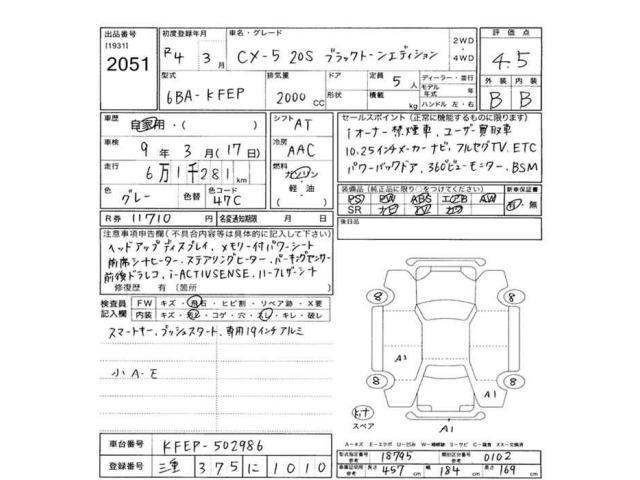 出品番号 [1931] 2051
初度登録年月 R4 3月
車名・グレード CX-5 20S ブラックトーンエディション
2WD・4WD
評価点 4.5
外装 B 内装 B
型式 6BA-KFEP
排気量 2000 CC
ドア 形状
定員 5人 積載 kg
ディーラー・並行
モデル年式 年
ハンドル 左・右
車歴 自家用・( )
シフト AT
車検 9年3月(17日)
冷房 AAC
走行 6万1千281 km
燃料 ガソリン・軽油・( )
色 グレー
色コード 47C
R券 11710円
名変通知期限 月 日
セールスポイント(正常に機能するものに限ります)
1オーナー禁煙車、ユーザー買取車
10.25インチメーカーナビ、フルセグTV、ETC
パワーバックドア、360°ビューモニター、BSM
装備品(純正品に限り○をつけてください)
PS PW ABS エアB AW
SR カワ TV ナビ
新車保証書 有・無
後日品
注意事項申告欄(不具合内容等は具体的に記入して下さい)
ヘッドアップディスプレイ、メモリー付パワーシート
前席シートヒーター、ステアリングヒーター、パーキングセンサー
前後ドラレコ、i-ACTIVSENSE、ハーフレザーシート
修復歴 有 [箇所 ]
検査員記入欄
FW キズ・飛石・ヒビ割・リペア跡・X要
内装 キズ・汚レ・コゲ・穴・スレ・キレ・破レ
スマートキー、プッシュスタート、専用19インチアルミ
小A・E
8 8
A3
8 8
A1
A1
キット
スペア
A－キズ E－エクボ U－凹み W－補修跡 S－サビ C－腐食 XX－交換済
車台番号 KFEP-502986
登録番号 三重 375 に 1010
型式指定番号 参考 18745
類別区分番号 参考 0102
車庫証明用 参考 長さ 457 cm 幅 184 cm 高さ 169 cm